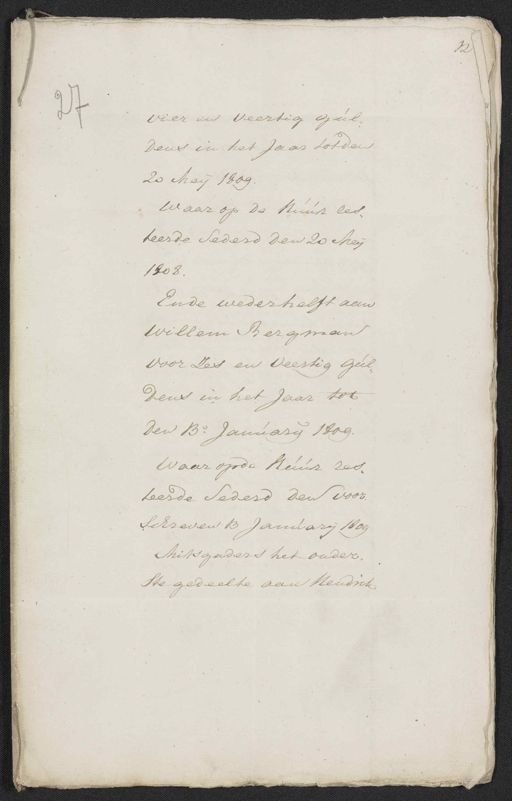 12
27
vier en veertig gúl,
dens in het Jaar tot den
20 Meÿ 1809.
Waar op de Húúr res,
teerde Sederd den 20 Meÿ
1808.
Ende wederhelft aan
Willem Bergman
voor Zes en veertig gúl,
dens in het Jaar tot
den 13e Janúarÿ 1809.
Waar op de Húúr res,
teerde Sederd den voor,
schreven 13 Janúarÿ 1809
Mitsgaders het onder,
ste gedeelte aan Hendrik